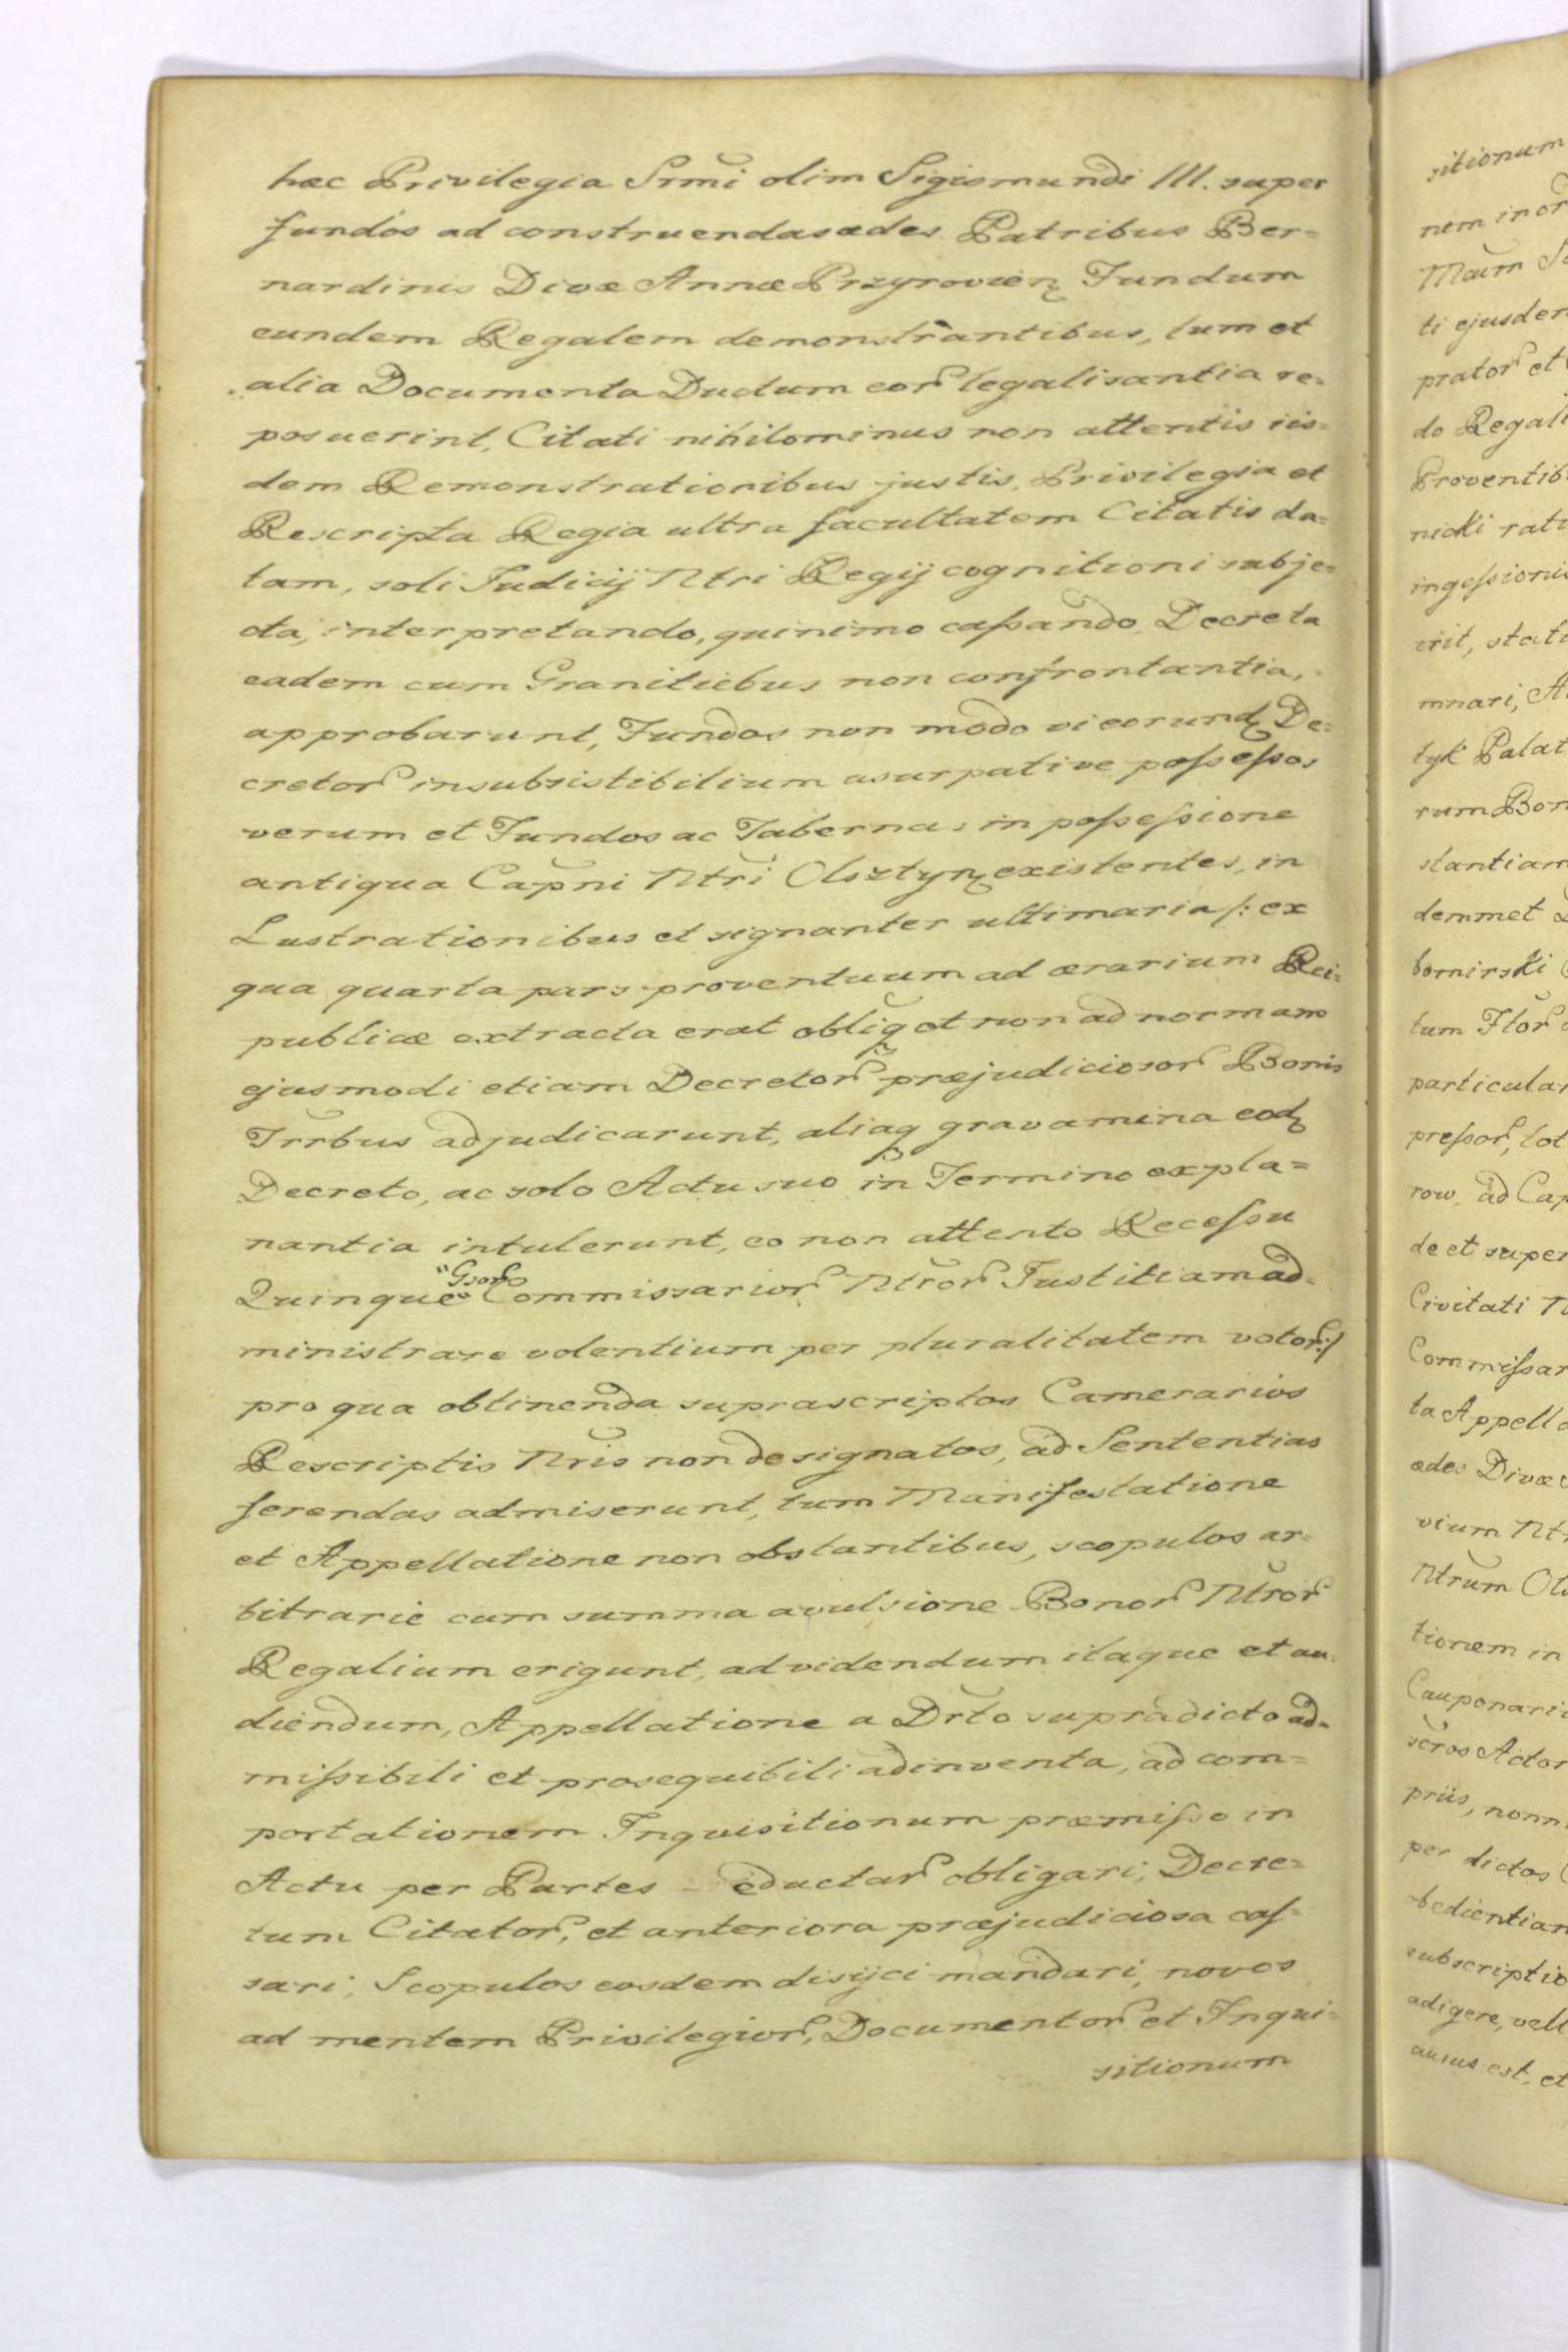 hæc Privilegia Srmi olim Sigismundi III. super
fundos ad construendas ædes Patribus Ber=
nardinis Divæ Annæ Przyrovien Fundum
eundem Regalem demonstrantibus, tum et
alia Documenta Dudum eor legalisantia re=
posuerint, Citati nihilominus non attentis iis=
dem Remonstrationibus justis, Privilegia et
Rescripta Regia ultra facultatem Citatis da=
tam, soli Judicij Ntri Regij cognitioni subje=
cta, interpretando, quinimo cassando, Decreta
eadem cum Granitiebus non confrontantia,
approbarunt, Fundos non modo vi eorund De=
cretor insubsistibilium usurpative possessos
verum et Fundos ac Tabernas in possessione
antiqua Capni Ntri Olsztyn existentes, in
Lustrationibus et signanter ultimaria /: ex
qua quarta pars proventuum ad ærarium Rei=
publicæ extracta erat obliq et non ad normam
ejusmodi etiam Decretor præjudiciosor Bonis
Trrbus adjudicarunt, aliaq gravamina eod
Decreto, ac solo Actu suo in Termino expla=
nantia intulerunt, eo non attento Recessu
Quinque "Gsor" Commissarior Ntror Justitiam ad=
ministrare volentium per pluralitatem votor :/
pro qua obtinenda suprascriptos Camerarios
Rescriptis Nris non designatos, ad Sententias
ferendas admiserunt, tum Manifestatione
et Appellatione non obstantibus, scopulos ar=
bitrarie cum summa avulsione Bonor Ntror
Regalium erigunt, ad videndum itaque et au=
diendum, Appellatione a Drto supradicto ad=
missibili et prosequibili adinventa, ad com=
portationem Inquisitionum præmisso in
Actu per Partes eductar obligari, Decre=
tum Citator, et anteriora præjudiciosa cas=
sari, Scopulos eosdem disijci mandari, novos
ad mentem Privilegior, Documentor et Inqui=
sitionum
sitionum
nem in or
Maum
ti ejusdem
prator et
do Regali
Proventib
nicki rat
ingessionis
erit, stat
mnari, A
tyk Palat
rum Bon
stantiam
demmet
bornirski
tum Flor
particular
pressor, tot
row, ad Cap
de et super
Civitati N
Commissar
ta Appella
ædes Divæ
vium Nt
Ntrum Ol
tionem in
Cauponari
scros Actor
priis, nonn
per dictos
obedientiam
subscriptio
adigere, vell
ausus est, et